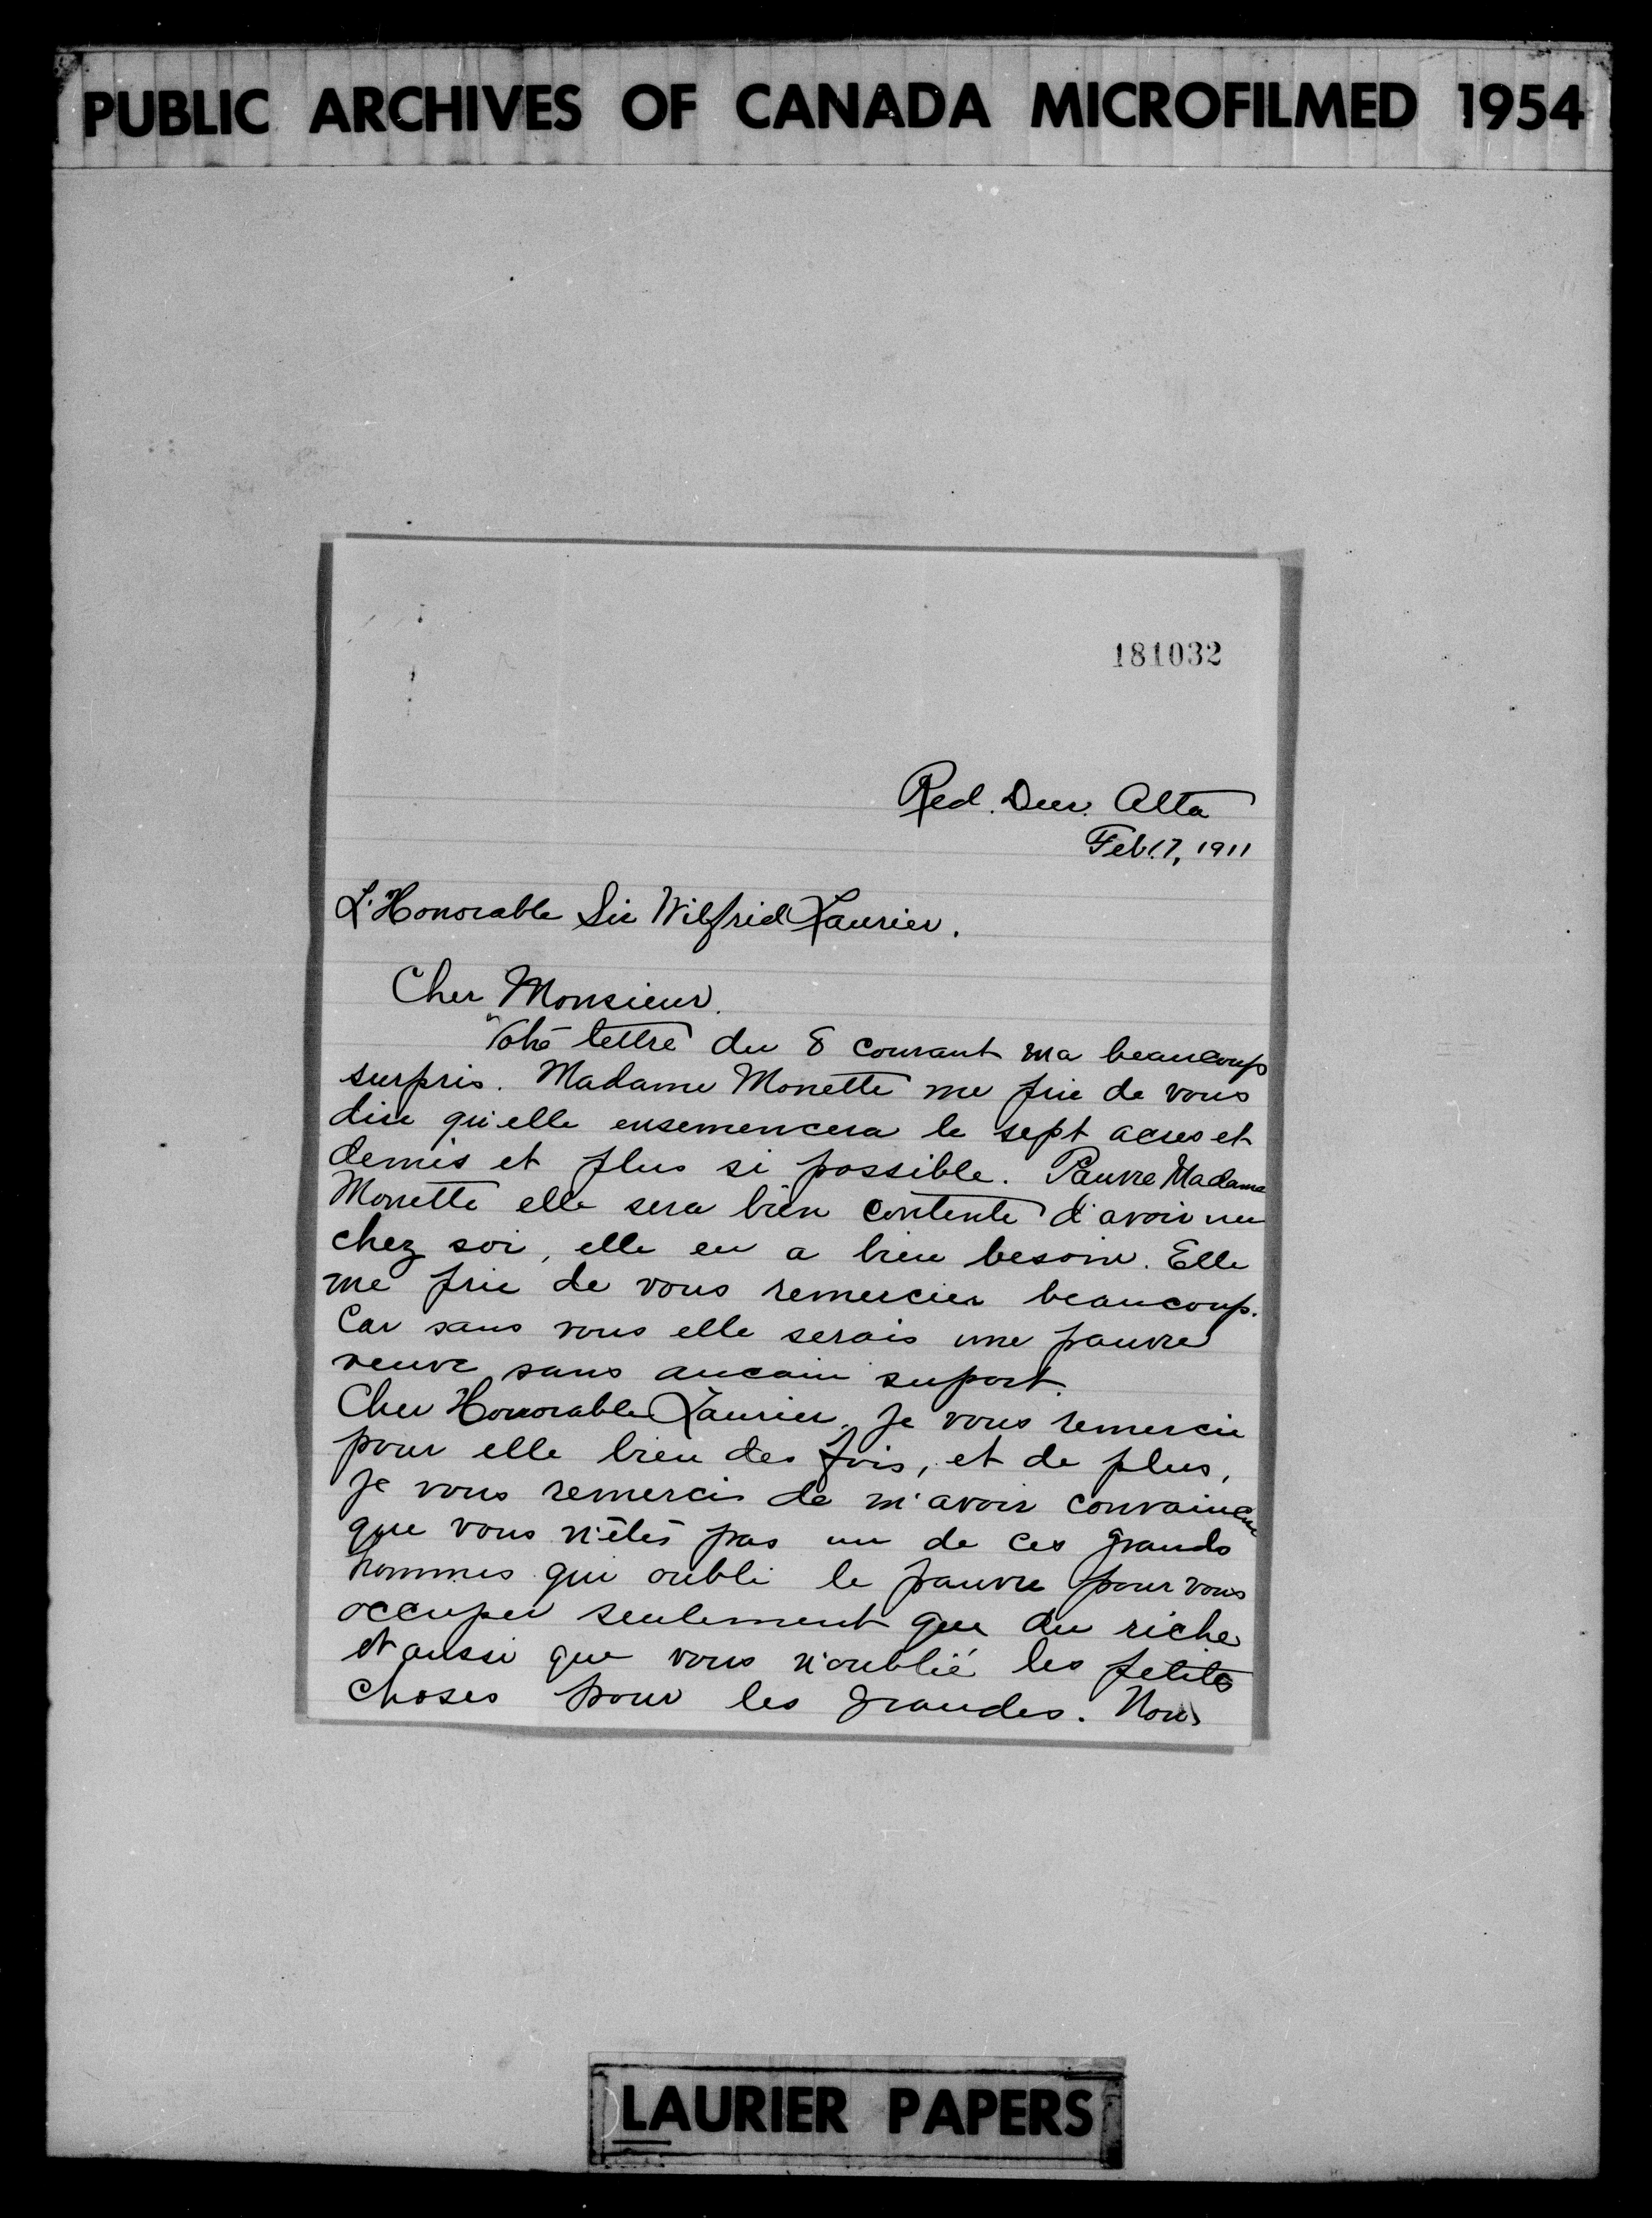 PUBLIC ARCHIVES OF CANADA MICROFILMED 1954
181032
Red. Deer. Alta
Feb. 17, 1911
L'Honorable Sir Wilfrid Laurier.
Cher Monsieur.
Votre lettre du 8 courant ma beaucoup
surpris. Madame Monette me prie de vous
dire qu'elle ensemencera le sept acres et
demis et plus si possible. Pauvre Madame
Monette elle sera bien contente d'avoir un
chez soi, elle en a bien besoin. Elle
me prie de vous remercier beaucoup.
Car sans vous elle serais une pauvre
veuve sans aucun suport.
Cher Honorable Laurier, je vous remercie
pour elle bien des fois, et de plus,
je vous remercis de m'avoir convaincu
que vous n'êtes pas un de ces grands
hommes qui oubli le pauvre pour vous
occuper seulement que du riche
et aussi que vous n'oublié les petites
choses pour les grandes. Nous
LAURIER PAPERS